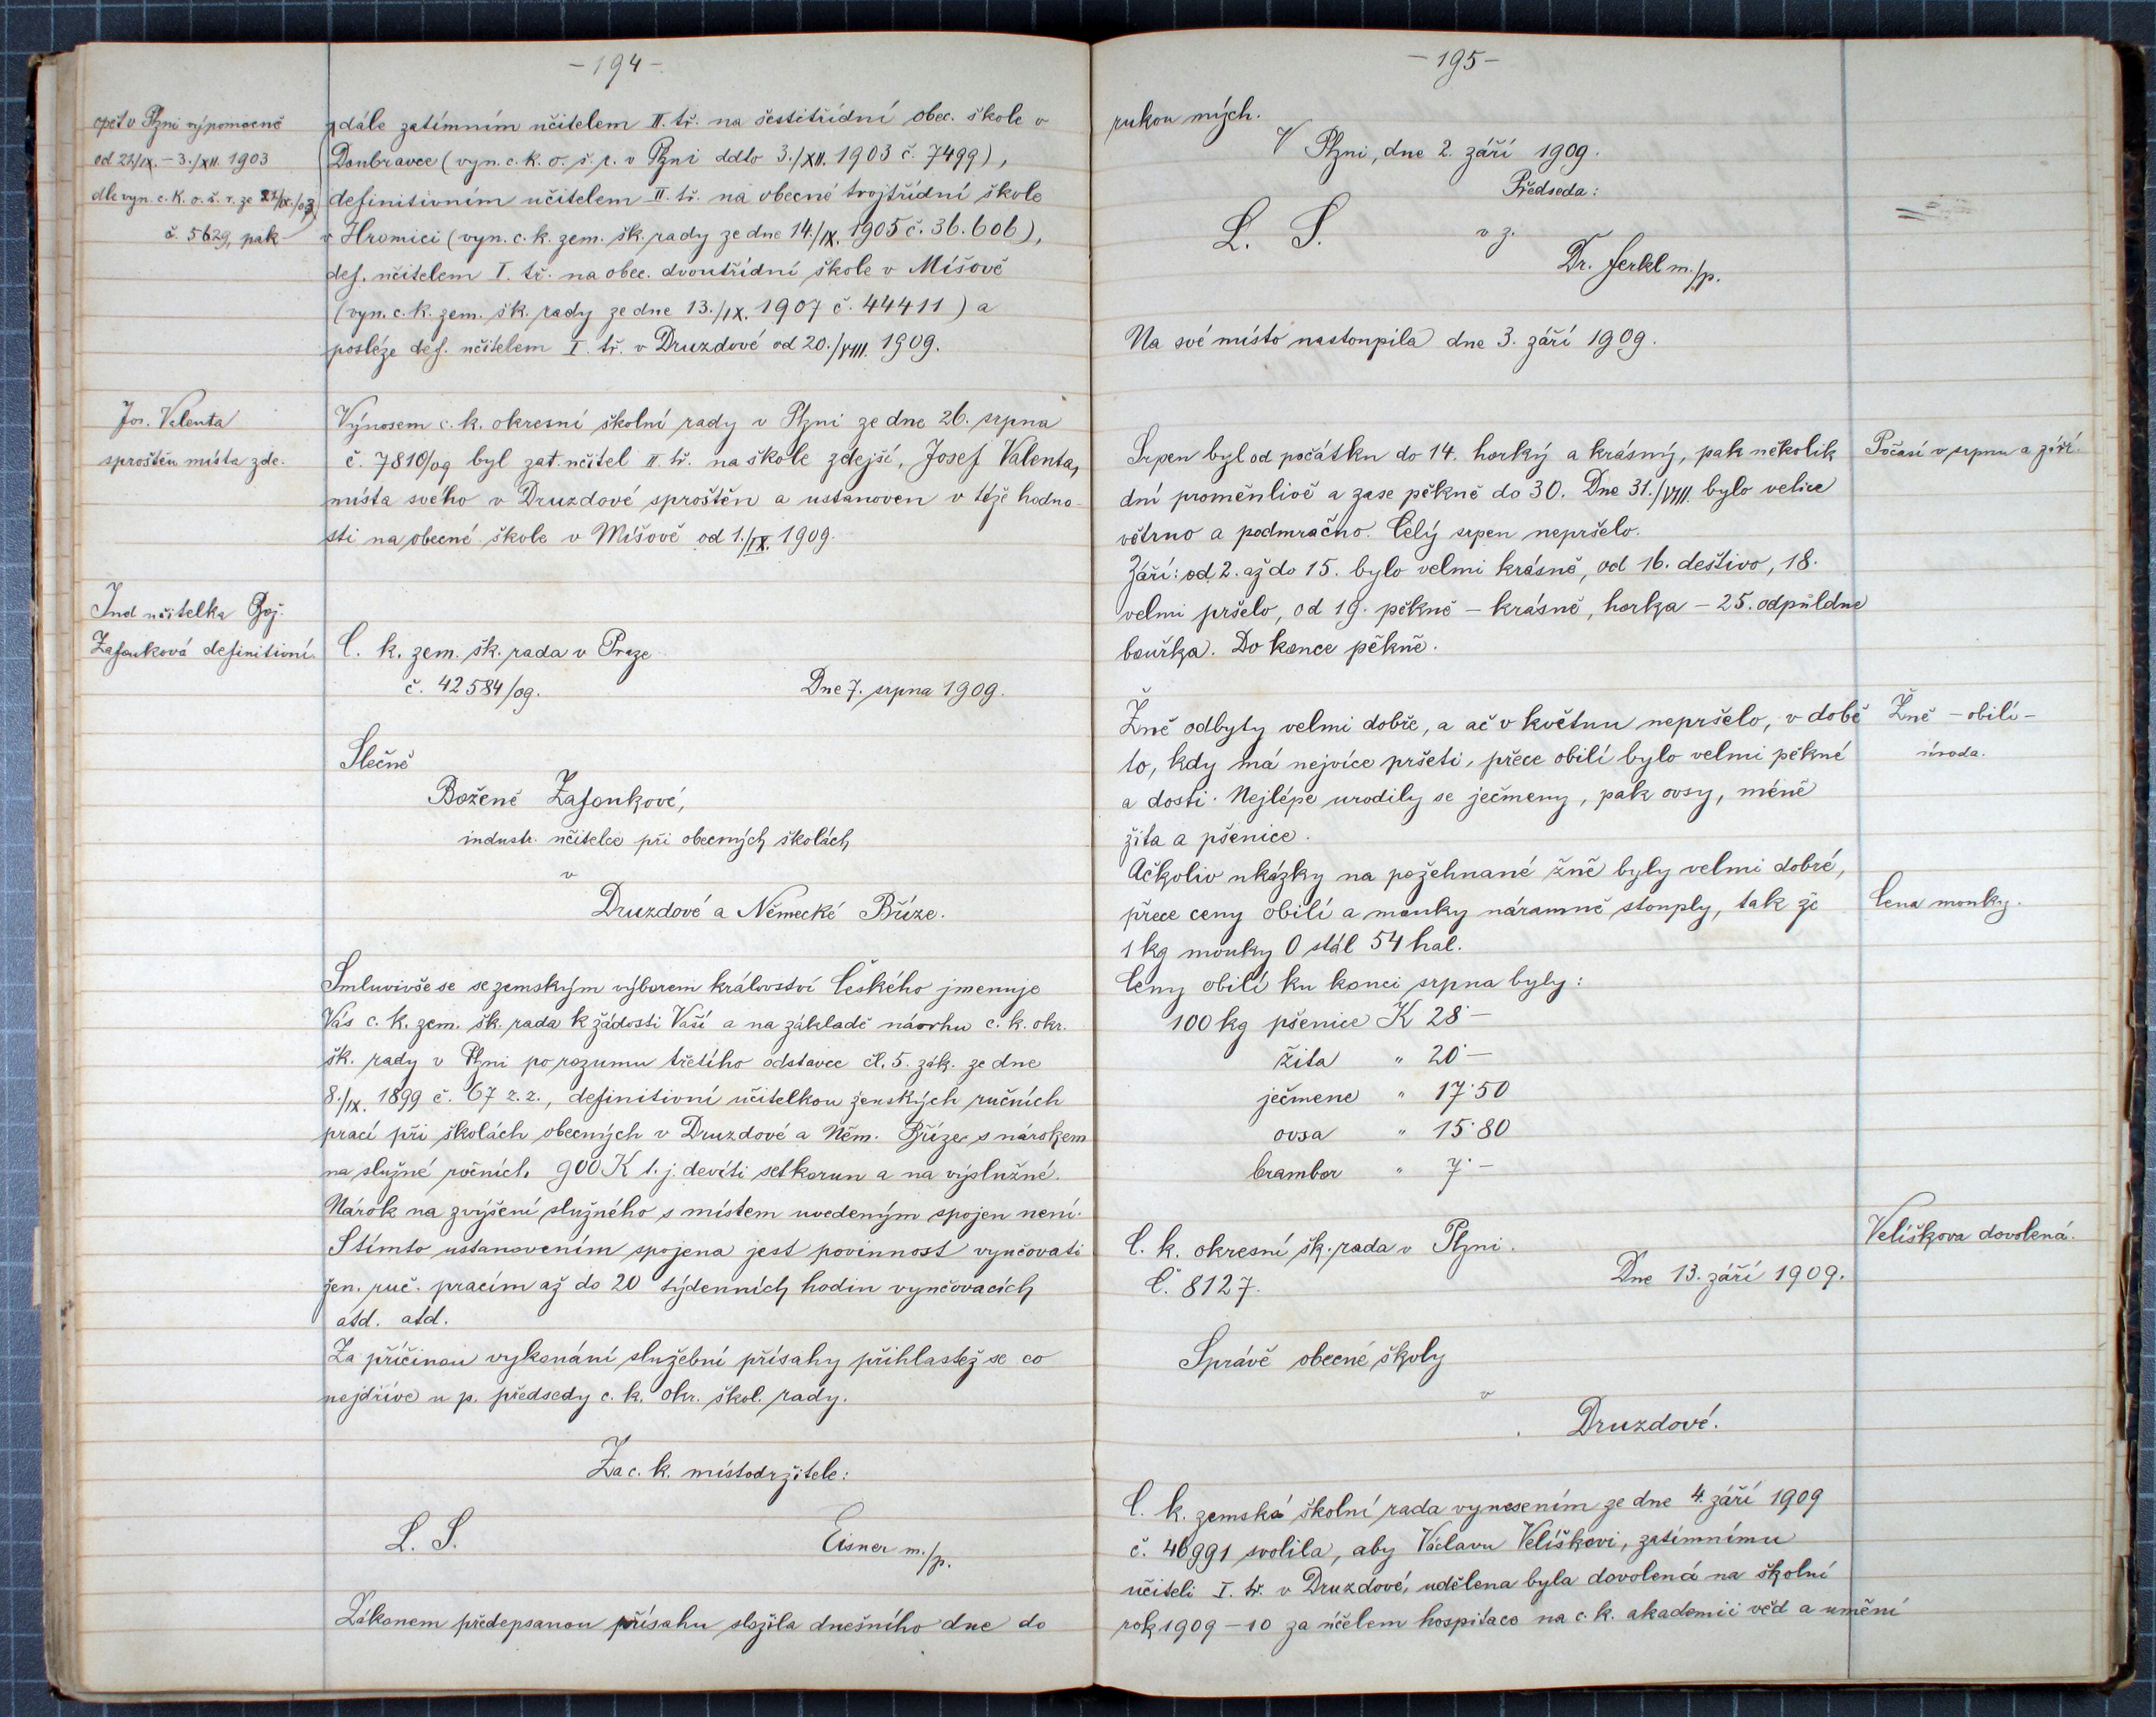 - 194 -
opět v Plzni výpomocně
od 22/IX. - 3./XII. 1903
dle vyn. c. k. o. š. r. ze 22/IX./03
č. 5629, pak
dále zatímním učitelem II. tř. na šestitřídní obec. škole v
Doubravce (vyn. c. k. o. š. r. v Plzni ddto 3./XII. 1903 č. 7499),
definitivním učitelem II. tř. na obecné trojtřídní škole
v Hromici (vyn. c. k. zem. šk. rady ze dne 14./IX. 1905 č. 36.606),
def. učitelem I. tř. na obec. dvoutřídní škole v Míšově
(vyn. c. k. zem. šk. rady ze dne 13./IX. 1907 č. 44411) a
posléze def. učitelem I. tř. v Druzdové od 20./VIII. 1909.
Jos. Valenta
sproštěn místa zde.
Výnosem c. k. okresní školní rady v Plzni ze dne 26. srpna
č. 7810/09 byl zat. učitel II. tř. na škole zdejší, Josef Valenta,
místa svého v Druzdové sproštěn a ustanoven v téže hodno-
sti na obecné škole v Míšově od 1./IX. 1909.
Ind učitelka Bož.
Zafouková definitivní.
C. k. zem. šk. rada v Praze
č. 42584/09. Dne 7. srpna 1909.
Slečně
Boženě Zafoukové,
industr. učitelce při obecných školách
v
Druzdové a Německé Bříze.
Smluvivše se se zemským výborem království Českého jmenuje
Vás c. k. zem. šk. rada k žádosti Vaší a na základě návrhu c. k. okr.
šk. rady v Plzni po rozumu třetího odstavce čl. 5. zák. ze dne
8./IX. 1899 č. 67 z. z., definitivní učitelkou ženských ručních
prací při školách obecných v Druzdové a Něm. Bříze s nárokem
na služné ročních 900 K t. j. devíti set korun a na výslužné.
Nárok na zvýšení služného s místem uvedeným spojen není.
S tímto ustanovením spojena jest povinnost vyučovati
žen. ruč. pracím až do 20 týdenních hodin vyučovacích
atd. atd.
Za příčinou vykonání služební přísahy přihlastež se co
nejdříve u p. předsedy c. k. okr. škol. rady.
Za c. k. místodržitele:
L. S. Eisner m./p.
Zákonem předepsanou přísahu složila dnešního dne do
- 195 -
rukou mých.
V Plzni, dne 2. září 1909.
Předseda:
L. S. v z.
Dr. Ferkl m./p.
Na své místo nastoupila dne 3. září 1909.
Srpen byl od počátku do 14. horký a krásný, pak několik
dní proměnlivě a zase pěkně do 30. Dne 31./VIII. bylo velice
větrno a podmračno. Celý srpen nepršelo.
Září: od 2. až do 15. bylo velmi krásně, od 16. deštivo, 18.
velmi pršelo, od 19. pěkně - krásně, horka - 25. odpůldne
bouřka. Do konce pěkně.
Počasí v srpnu a září.
Žně odbyty velmi dobře, a ač v květnu nepršelo, v době
to, kdy má nejvíce pršeti, přece obilí bylo velmi pěkné
a dosti. Nejlépe urodily se ječmeny, pak ovsy, méně
žita a pšenice.
Žně - obilí -
úroda.
Ačkoliv ukázky na požehnané žně byly velmi dobré,
přece ceny obilí a mouky náramně stouply, tak že
1 kg mouky 0 stál 54 hal.
Cena mouky.
Ceny obilí ku konci srpna byly:
100 kg pšenice K 28·-
žita " 20·-
ječmene " 17·50
ovsa " 15·80
brambor " 7·-
C. k. okresní šk. rada v Plzni.
Č. 8127. Dne 13. září 1909.
Velíškova dovolená.
Správě obecné školy
v
Druzdové.
C. k. zemská školní rada vynesením ze dne 4. září 1909
č. 46991 svolila, aby Václavu Velíškovi, zatímnímu
učiteli I. tř. v Druzdové, udělena byla dovolená na školní
rok 1909 - 10 za účelem hospitace na c. k. akademii věd a umění